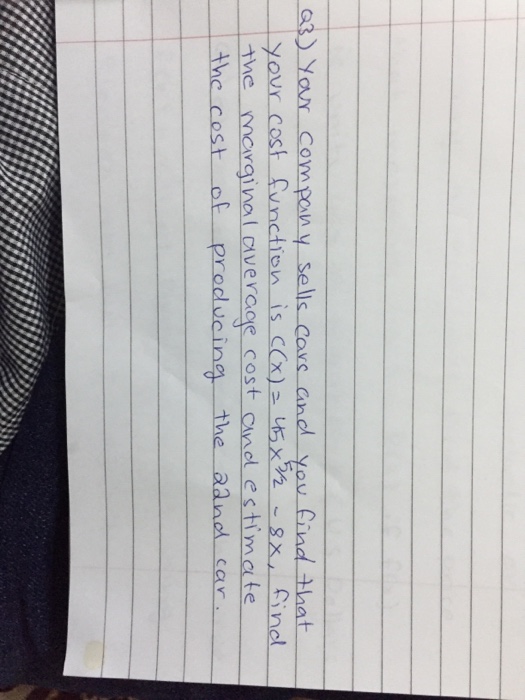 Q3) Your company sells cars and you find that
your cost function is C(x) = 45x^5/2 - 8x, find
the marginal average cost and estimate
the cost of producing the 22nd car.